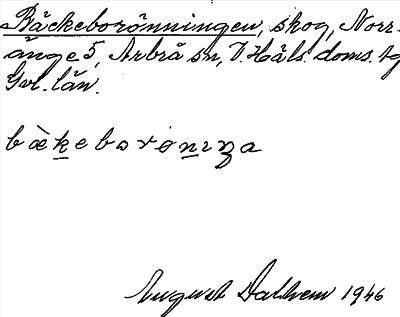 Bäckeborönningen, skog, Norr-
änge 5, Arbrå sn, V. Häls. doms. tg
Gvl. län.
bäkeborönıŋa
August Dalhem 1946